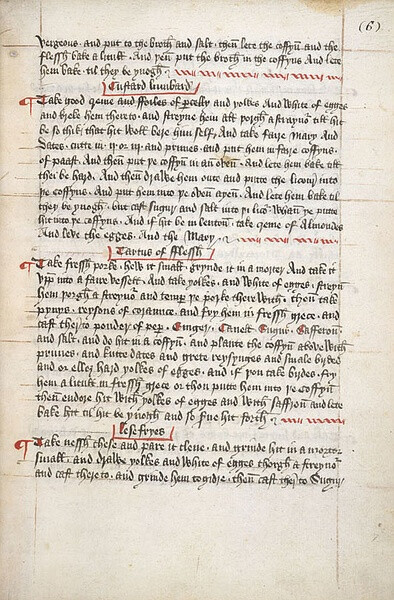 (6)
vergeous · and put to the broth and salt · then lete the coffyn and the
flessh bake a litull · And þen put the broth in the coffyns And lete
hem bake til they be ynogh
Custard lumbard
Take good creme and ffoiles of percelly and yolkes And white of egges
and breke hem thereto · and streyne hem all þorgh a straynour till hit
be so stiff that hit woll bere him self And take faire Mary And
Dates · cutte in · ij · or iij · and prunes · and put hem in faire coffyns
of paast · And then put þe coffyn in an oven · and lete hem bake till
thei be hard · And then drawe hem oute and putte the licour into
þe coffyns · And put hem into þe oven ayen · And lete hem bake til
they be ynogh · but cast sugur and salt into þi licour whan ye putte
hit into þe coffyns · And if hit be in lenton take creme of Almondes
And leve the egges · And the Mary
Tartus of fflessh
Take fressh porke · hew it small · grynde it in a morter And take it
vpp into a faire vessell · And take yolkes · and white of egges · streyn
hem þorgh a streynour and temper þe porke there with · then take
pynes · reysons of coraunce · and fry hem in fressh grece · and
cast therto pouder of peper · Ginger · Canell Sugur · Safferon
and salt · and do hit in a coffyn · and plante the coffyn above with
prunes · and kutte dates and grete reysynges and smale birdes
and or elles hard yolkes of egges · and if you take birdes · fry
hem a litull in fressh grece or thou putte hem into þe coffyn
then endore hit with yolkes of egges and with saffron and lete
bake hit til hit be ynogh and so serue hit forth
lesefryes
Take nessh chese and pare it clene · and grinde hit in a mortor
small · and drawe yolkes and white of egges thorgh a streynour
and cast thereto · and grinde hem togidre · then cast therto Sugur